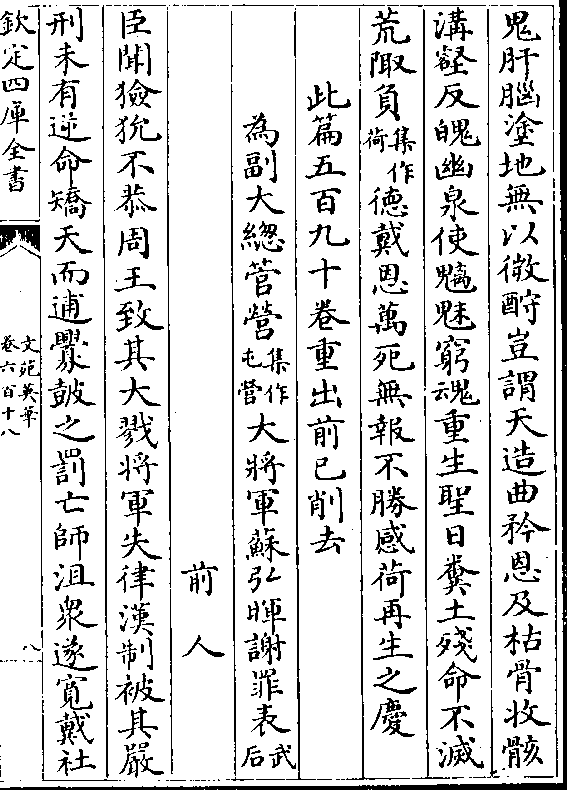 鬼肝腦塗地無以儆酧豈謂天造曲矜恩及枯骨收骸
溝壑反魄幽泉使魑魅窮魂重生聖日糞土殘命不滅
荒陬負集作荷德戴恩萬死無報不勝感荷再生之慶
此篇五百九十卷重出前已削去
為副大總管營集作屯營大將軍蘇弘暉謝罪表武后
前人
臣聞獫狁不恭周王致其大戮將軍失律漢制被其嚴
刑未有逆命矯天而逋釁鼓之罰亡師沮衆遂寛戴社
欽定四庫全書
文苑英華
卷六百十八
八